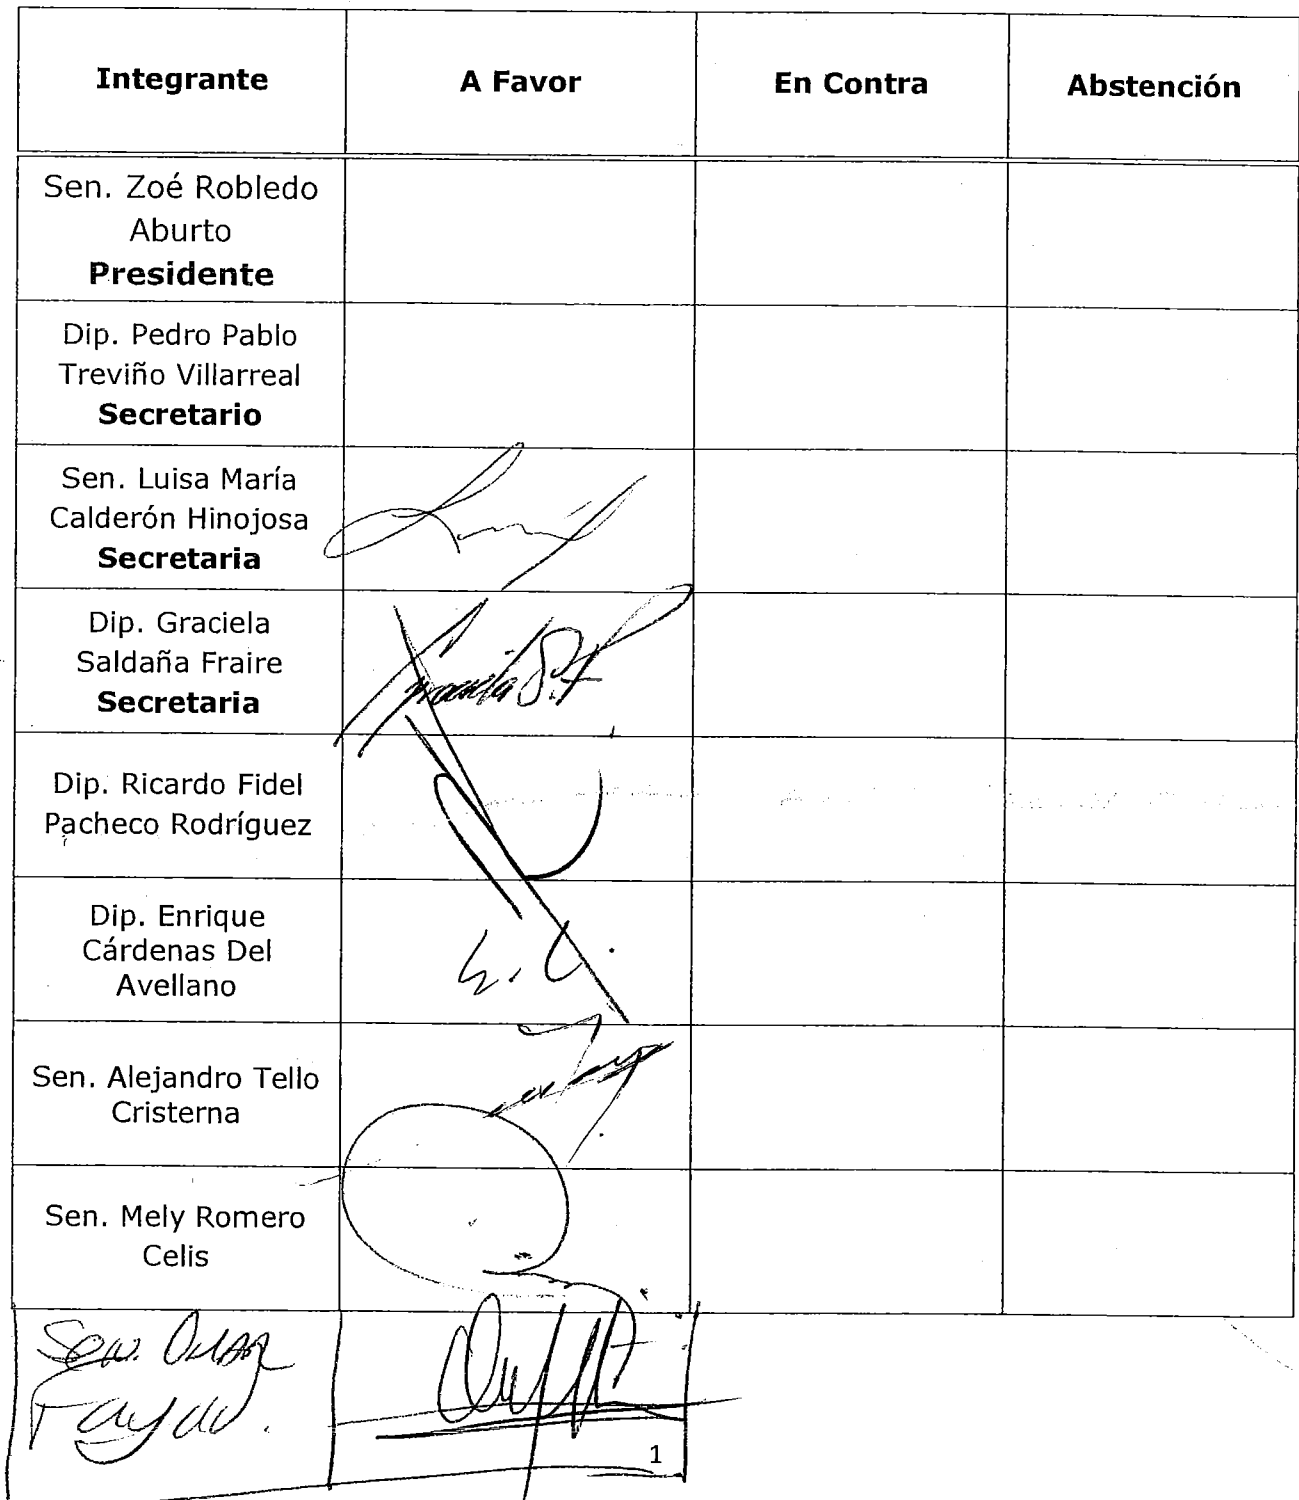 Integrante A Favor En Contra Abstención
Sen. Zoé Robledo
Aburto
Presidente
Dip. Pedro Pablo
Treviño Villarreal
Secretario
Sen. Luisa María
Calderón Hinojosa
Secretaria
Dip. Graciela
Saldaña Fraire
Secretaria
Dip. Ricardo Fidel
Pacheco Rodríguez
Dip. Enrique
Cárdenas Del
Avellano
Sen. Alejandro Tello
Cristerna
Sen. Mely Romero
Celis
Sen. Omar
Fayad.
1